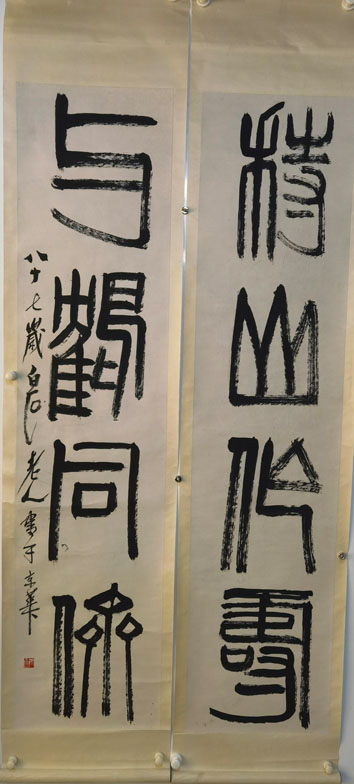 持山作壽
与鶴同儕
八十七歲白石老人書于京華